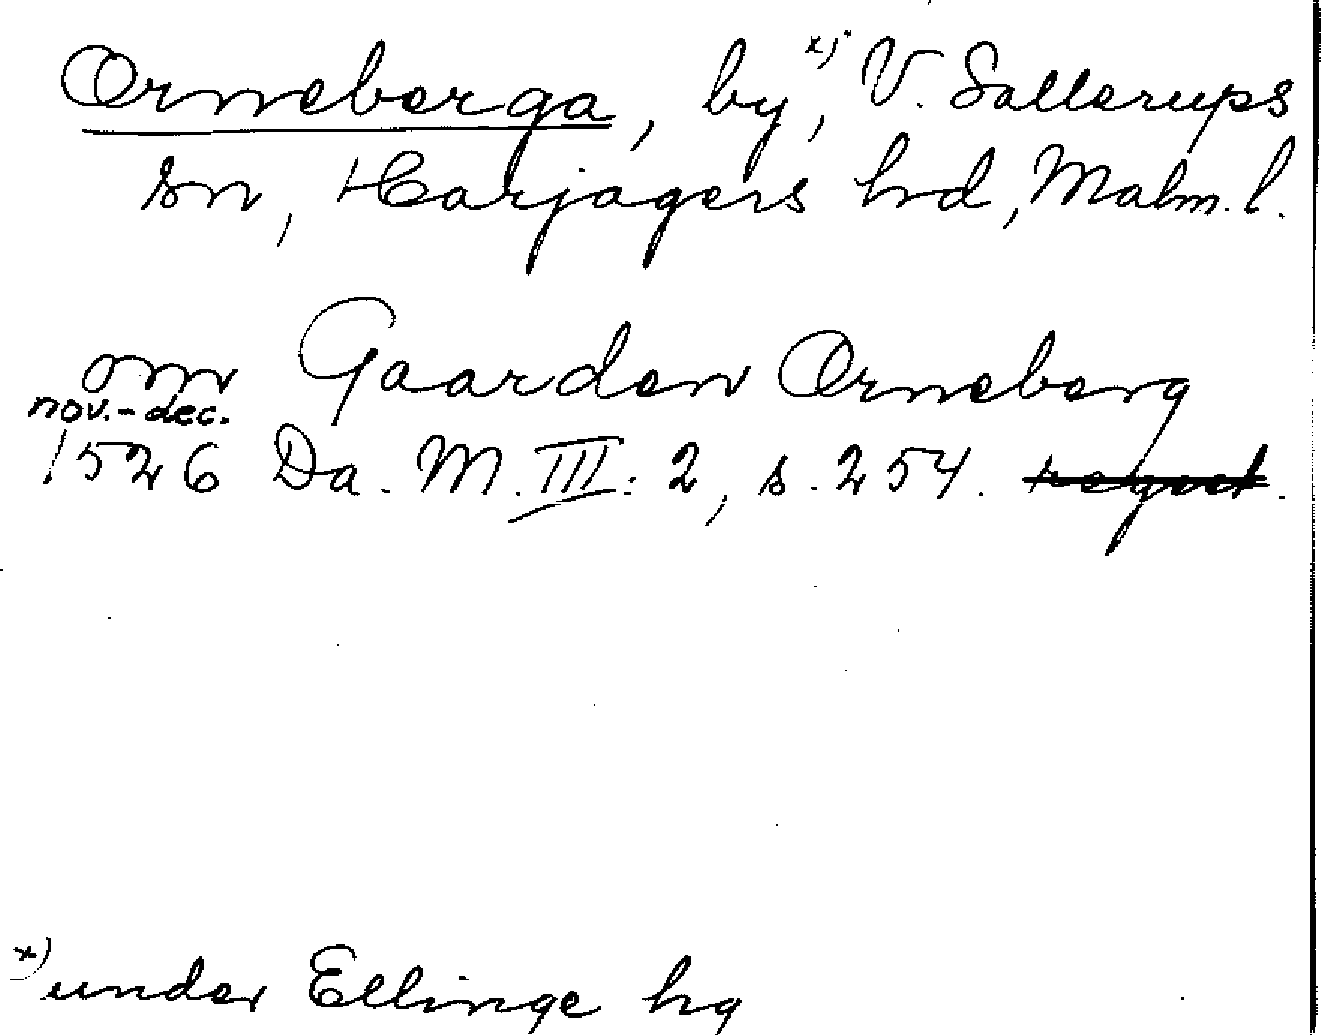 Orneberga, by, x) V. Sallerups
sn, Harjagers hd, Malm. l.
om Gaarden Orneberg
nov.-dec.
1526 Da. M. III: 2, s. 254.
x) under Ellinge hg